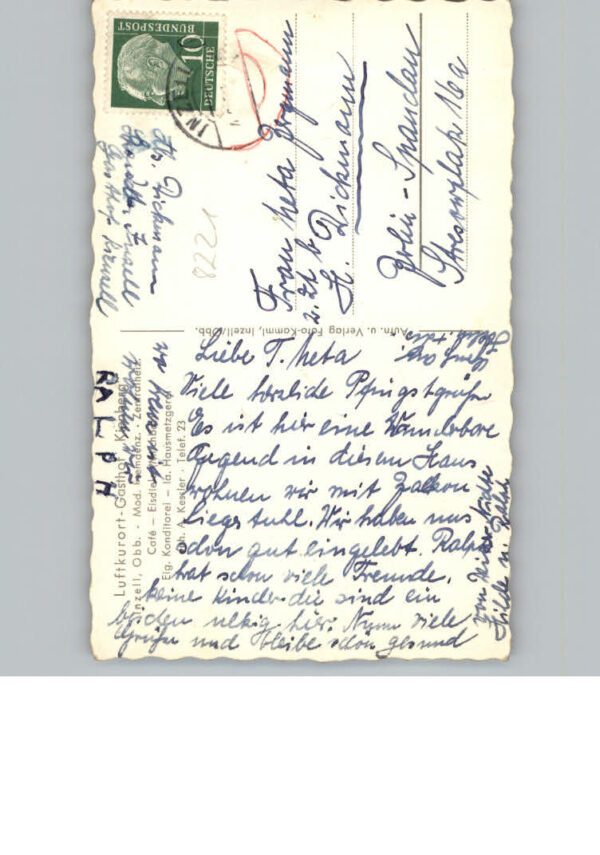 10
DEUTSCHE
BUNDESPOST
INZ
Abs. Dickmann
Inzell
8221
Frau Meta
z. Zt b
H. Dickmann
Berlin-Spandau
Stresowplatz 16a
Aufn. u. Verlag Foto-Kamml, Inzell/Obb.
Luftkurort-Gasthof
Inzell, Obb. · Mod. Fremdenz. · Zentralheiz.
Café – Eisdiele
Eig. Konditorei – Ia. Hausmetzgerei
Kessler · Telef. 23
RALPH
Liebe T. Meta
Viele herzliche Pfingstgrüße
Es ist hier eine Wunderbare
Gegend in diesem Haus
wohnen wir mit Balkon
Liegestuhl. Wir haben uns
schon gut eingelebt. Ralph
hat schon viele Freunde,
keine Kinder die sind ein
bischen ulkig hier. Nun viele
Grüße und bleibe schön gesund
von
Hilde u. Ralph